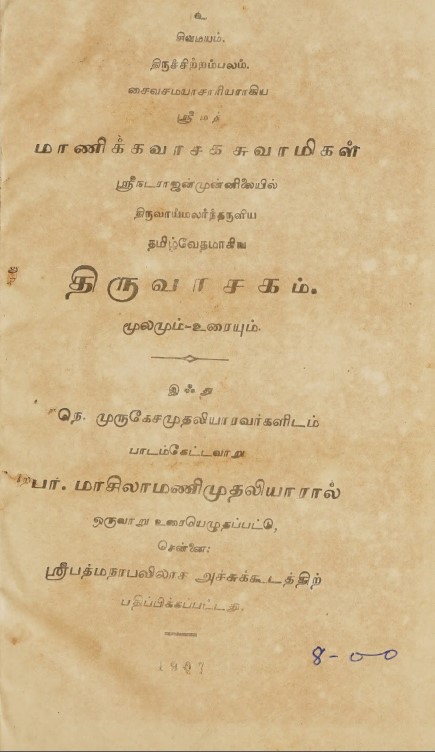 உ
சின்மயம்.
திருச்சிற்றம்பலம்.
சைவசமயாசாரியராகிய
ஸ்ரீமத்
மாணிக்கவாசகசுவாமிகள்
ஸ்ரீநடராஜன்முன்னிலையில்
திருவாய்மலர்ந்தருளிய
தமிழ்வேதமாகிய
திருவாசகம்.
மூலமும்-உரையும்.
இஃது
நெ. முருகேசமுதலியாரவர்களிடம்
பாடங்கேட்டவாறு
பர். மாசிலாமணிமுதலியாரால்
ஒருவாறு உரையெழுதப்பட்டு,
சென்னை:
ஸ்ரீபத்மநாபவிலாச அச்சுக்கூடத்திற்
பதிப்பிக்கப்பட்டது.
1897
8-00